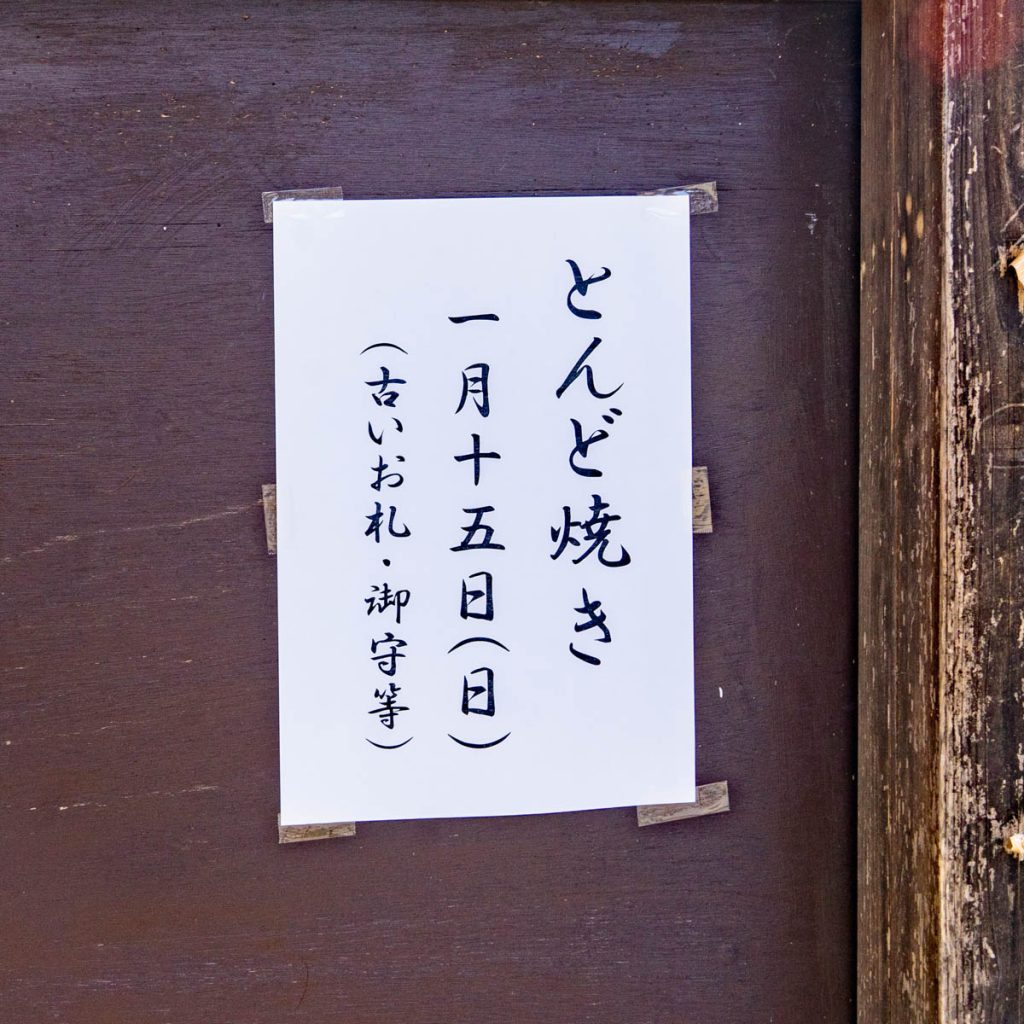 とんど焼き
一月十五日(日)
(古いお札・御守等)